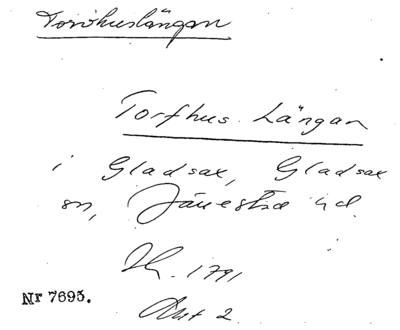 Torvhuslängan
Torfhus Längan
i Gladsax, Gladsax
sn, Järrestad hd
Kk. 1791
Akt 2
Nr 7695.